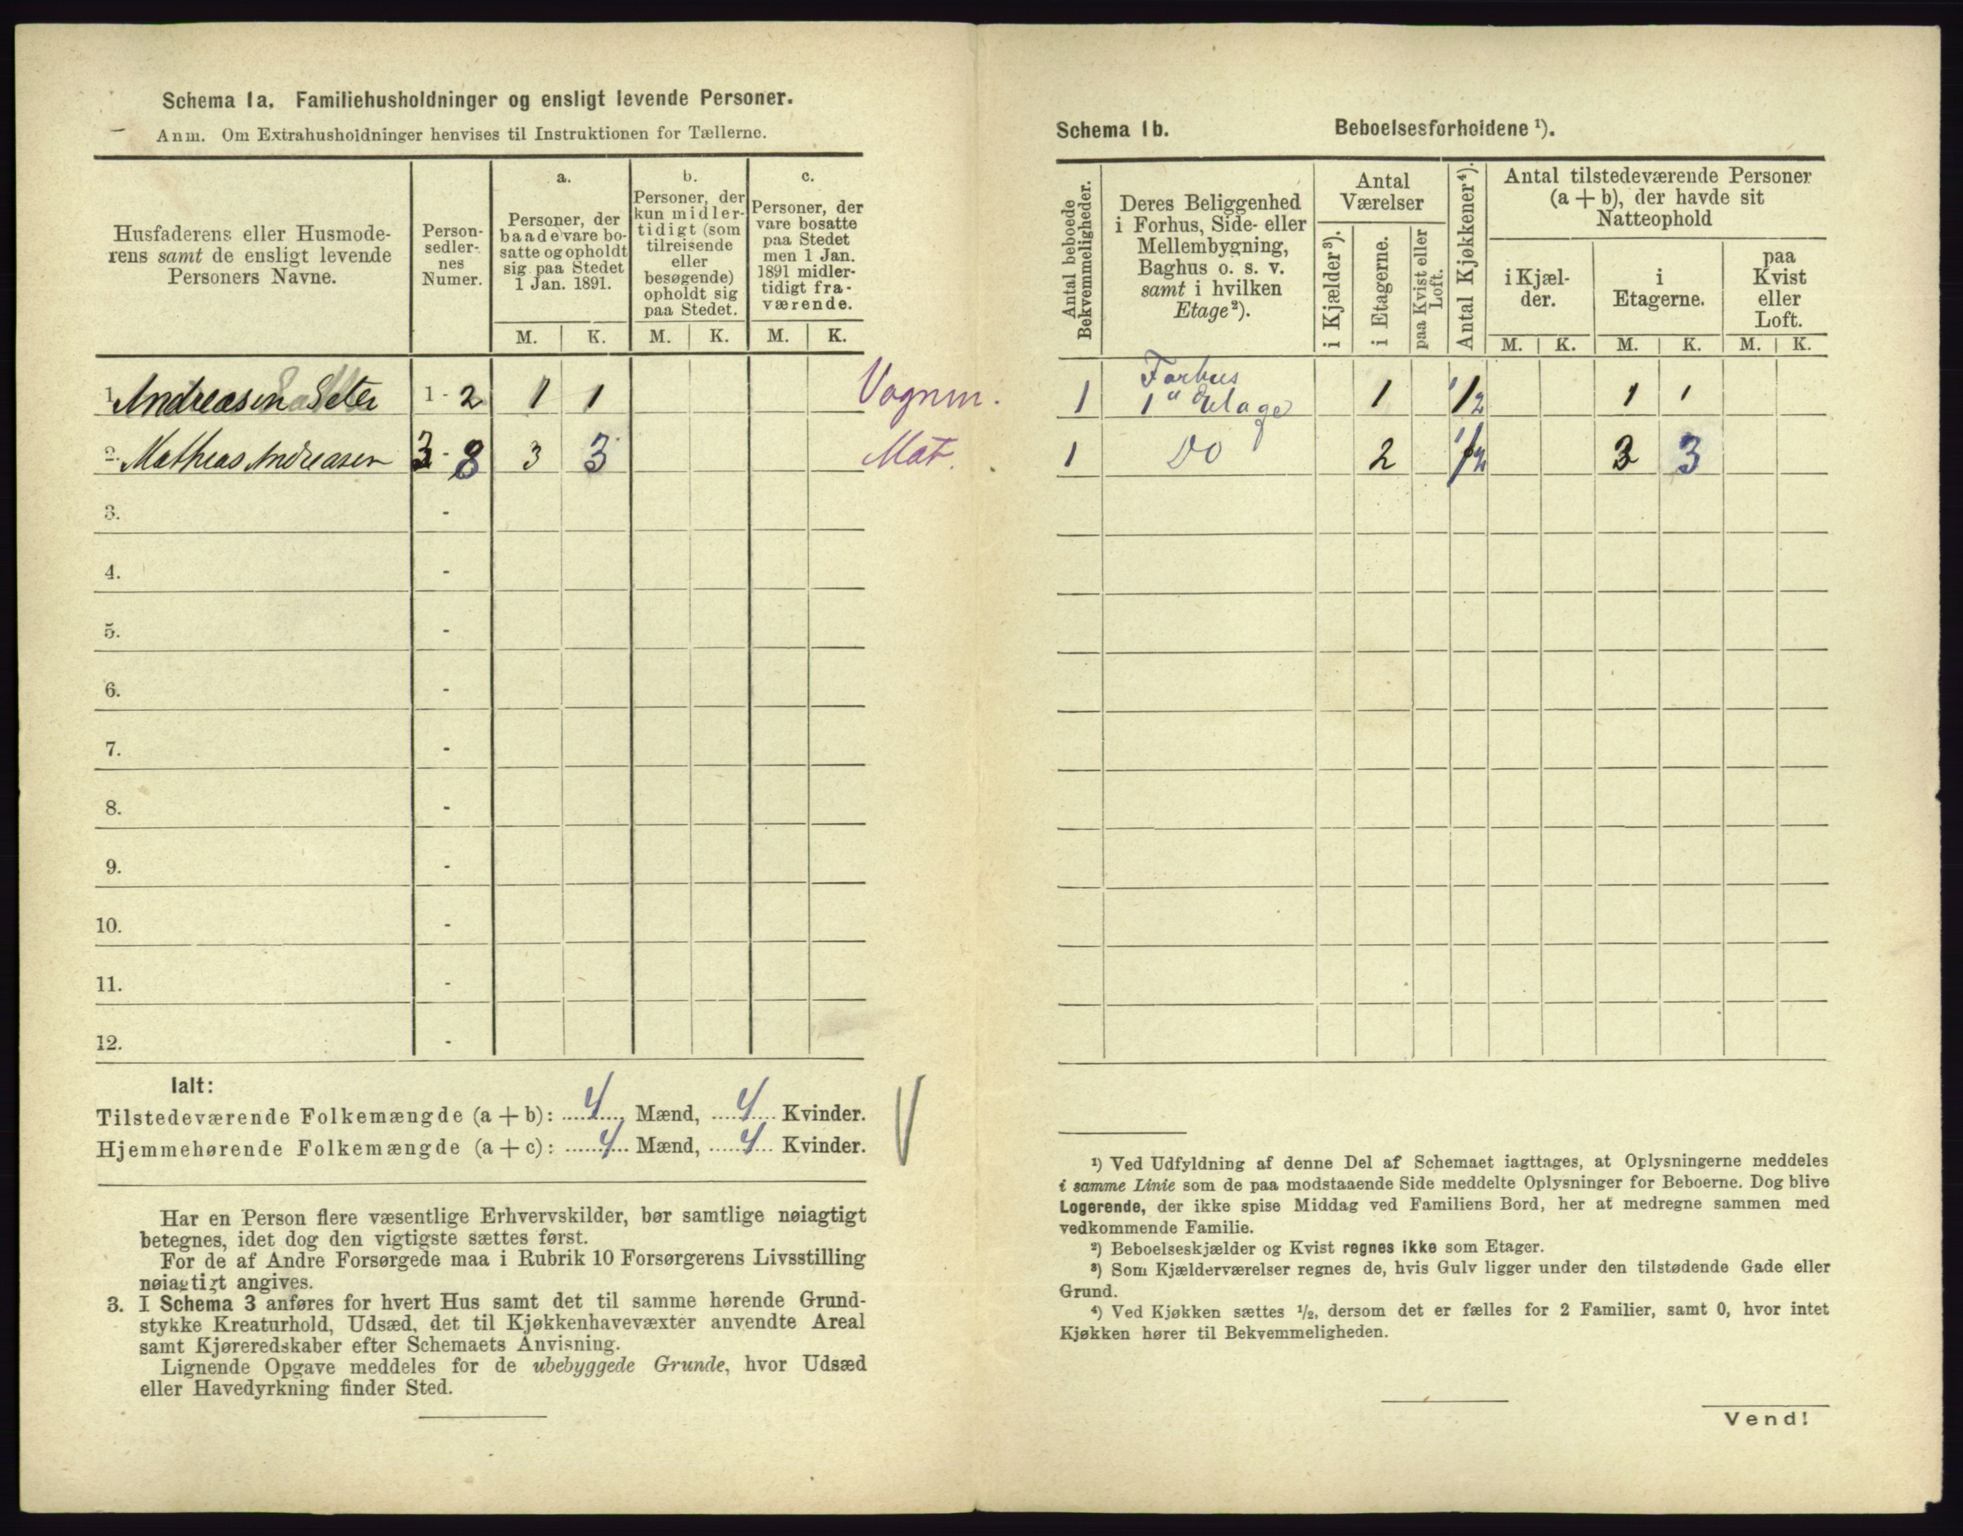 Schema 1a. Familiehusholdninger og ensligt levende Personer.
Anm. Om Extrahusholdninger henvises til Instruktionen for Tællerne.
Husfaderens eller Husmode-
rens samt de ensligt levende
Personers Navne.
Person-
sedler-
nes
Numer.
a.
Personer, der
baade vare bo-
satte og opholdt
sig paa Stedet
1 Jan. 1891.
b.
Personer, der
kun midler-
tidigt (som
tilreisende
eller
besøgende)
opholdt sig
paa Stedet.
c.
Personer, der
vare bosatte
paa Stedet
men 1 Jan.
1891 midler-
tidigt fra-
værende.
M. K. M. K. M. K.
1. Andreasen Peter 1 - 2 1 1 Vognm.
2. Matheas Andreasen 3 - 8 3 3 Mat.
3. -
4. -
5. -
6. -
7. -
8. -
9. -
10. -
11. -
12. -
Ialt:
Tilstedeværende Folkemængde (a + b): 4 Mænd, 4 Kvinder.
Hjemmehørende Folkemængde (a + c): 4 Mænd, 4 Kvinder.
Har en Person flere væsentlige Erhvervskilder, bør samtlige nøiagtigt
betegnes, idet dog den vigtigste sættes først.
For de af Andre Forsørgede maa i Rubrik 10 Forsørgerens Livsstilling
nøiagtigt angives.
3. I Schema 3 anføres for hvert Hus samt det til samme hørende Grund-
stykke Kreaturhold, Udsæd, det til Kjøkkenhavevæxter anvendte Areal
samt Kjøreredskaber efter Schemaets Anvisning.
Lignende Opgave meddeles for de ubebyggede Grunde, hvor Udsæd
eller Havedyrkning finder Sted.
Schema 1b. Beboelsesforholdene ¹).
Antal beboede
Bekvemmeligheder.
Deres Beliggenhed
i Forhus, Side- eller
Mellembygning,
Baghus o. s. v.
samt i hvilken
Etage²).
Antal
Værelser
i Kjælder³).
i Etagerne.
paa Kvist eller
Loft.
Antal Kjøkkener⁴).
Antal tilstedeværende Personer
(a + b), der havde sit
Natteophold
i Kjæl-
der.
i
Etagerne.
paa
Kvist
eller
Loft.
M. K. M. K. M. K.
1 Forhus
1ste Etage 1 1/2 1 1
1 Do 2 1/2 3 3
¹) Ved Udfyldning af denne Del af Schemaet iagttages, at Oplysningerne meddeles
i samme Linie som de paa modstaaende Side meddelte Oplysninger for Beboerne. Dog blive
Logerende, der ikke spise Middag ved Familiens Bord, her at medregne sammen med
vedkommende Familie.
²) Beboelseskjælder og Kvist regnes ikke som Etager.
³) Som Kjælderværelser regnes de, hvis Gulv ligger under den tilstødende Gade eller
Grund.
⁴) Ved Kjøkken sættes ½, dersom det er fælles for 2 Familier, samt 0, hvor intet
Kjøkken hører til Bekvemmeligheden.
Vend!